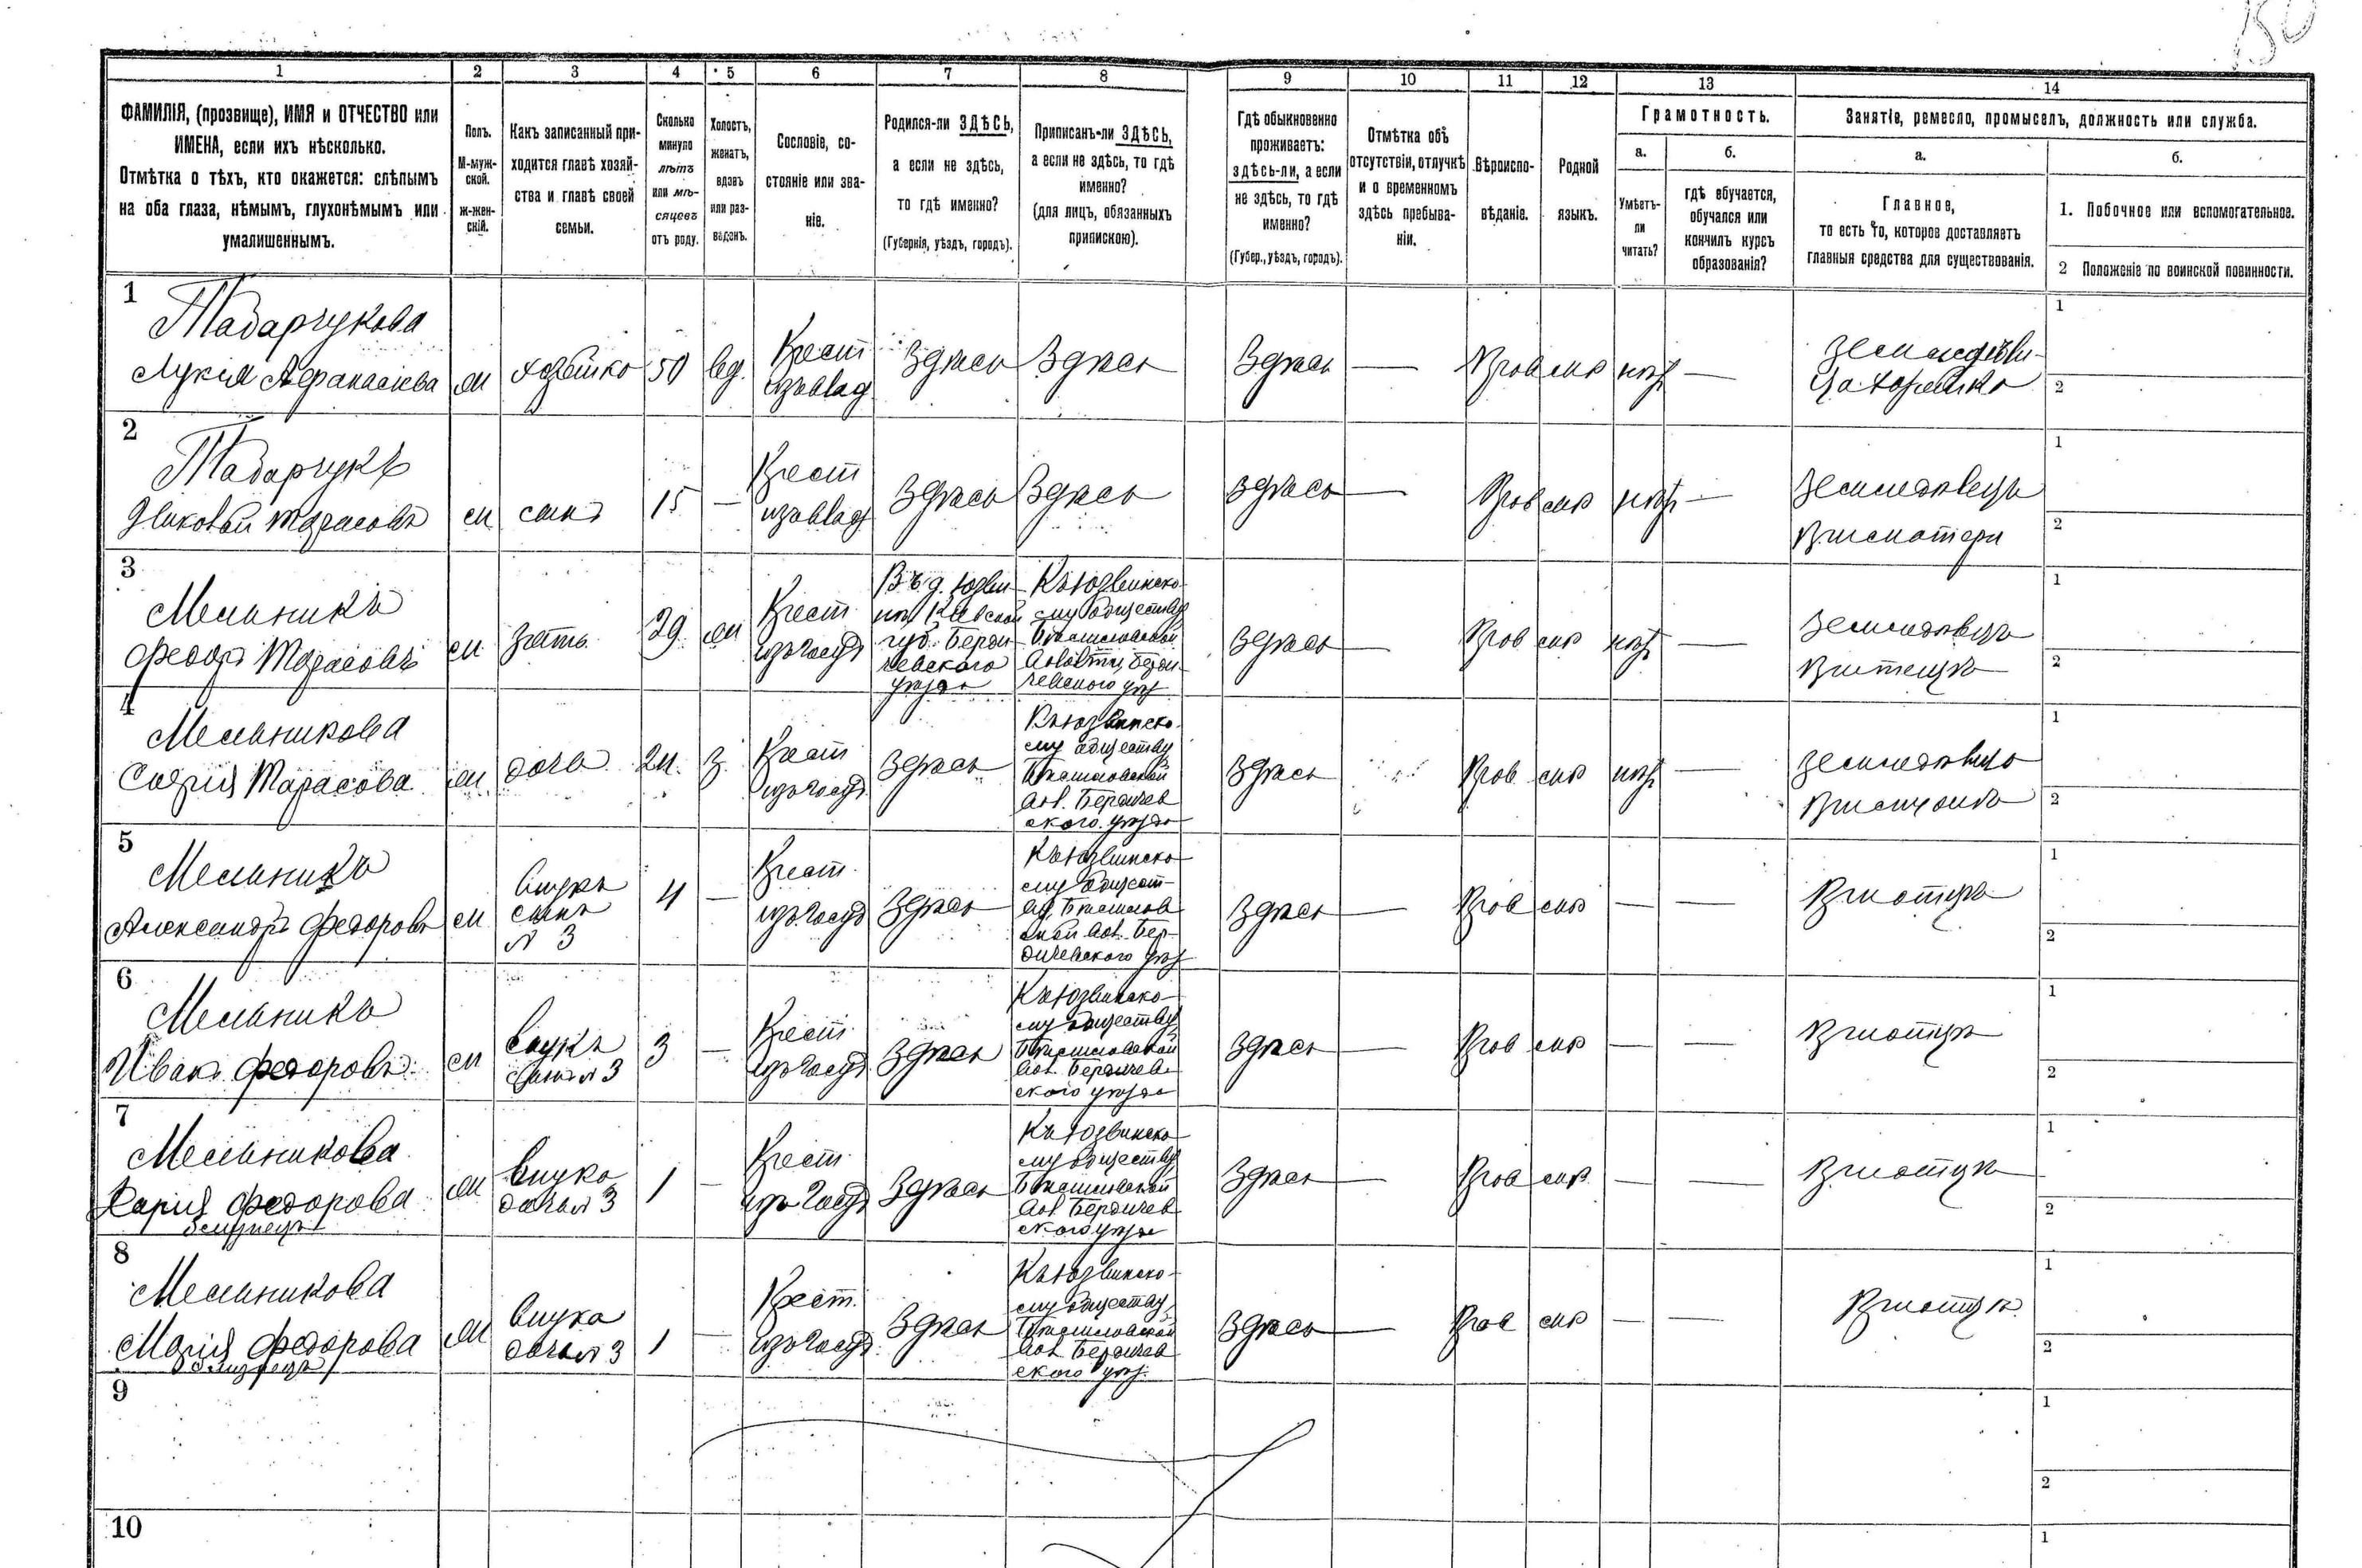 150
1 2 3 4 5 6 7 8 9 10 11 12 13 14
ФАМИЛІЯ, (прозвище), ИМЯ и ОТЧЕСТВО или
ИМЕНА, если ихъ нѣсколько.
Отмѣтка о тѣхъ, кто окажется: слѣпымъ
на оба глаза, нѣмымъ, глухонѣмымъ или
умалишеннымъ.
Полъ.
М-муж-
ской.
ж-жен-
скій.
Какъ записанный при-
ходится главѣ хозяй-
ства и главѣ своей
семьи.
Сколько
минуло
лѣтъ
или мѣ-
сяцевъ
отъ роду.
Холостъ,
женатъ,
вдовъ
или раз-
веденъ.
Сословіе, со-
стояніе или зва-
ніе.
Родился-ли ЗДѢСЬ,
а если не здѣсь,
то гдѣ именно?
(Губернія, уѣздъ, городъ).
Приписанъ-ли ЗДѢСЬ,
а если не здѣсь, то гдѣ
именно?
(для лицъ, обязанныхъ
припискою).
Гдѣ обыкновенно
проживаетъ:
здѣсь-ли, а если
не здѣсь, то гдѣ
именно?
(Губер., уѣздъ, городъ).
Отмѣтка объ
отсутствіи, отлучкѣ
и о временномъ
здѣсь пребыва-
ніи.
Вѣроиспо-
вѣданіе.
Родной
языкъ.
Грамотность.
а.
Умѣетъ-
ли
читать?
б.
гдѣ обучается,
обучался или
кончилъ курсъ
образованія?
Занятіе, ремесло, промыселъ, должность или служба.
а.
Главное,
то есть то, которое доставляетъ
главныя средства для существованія.
б.
1. Побочное или вспомогательное.
2 Положеніе по воинской повинности.
1
Тадарчукова
Лукія Афанасіева
хозяйка 50 вд. Крест
изъ влад
Здѣсь Здѣсь Здѣсь — Прав —
1
2
2
Тадарчукъ
Тарасовъ
м сынъ 15 — Крест
изъ влад
Здѣсь Здѣсь Здѣсь — Прав —
Земледѣлецъ
При матери
1
2
3
Мельникъ
Федоръ Тарасовъ
м зять 29 Крест
изъ госуд
Кіевской
губ. Берди-
чевского
уѣзда
Къ Юзвинско-
му обществу
Берди-
чевского уѣз
Здѣсь — Прав —
Земледѣлецъ
1
2
4
Мельникова
Софія Тарасова
дочь 24. з. Крест
изъ госуд
Здѣсь
Къ Юзвинско-
му обществу
вол. Бердичев
ского уѣзда
Здѣсь Прав —
1
2
5
Мельникъ
Александръ Федоровъ
м
внукъ
сынъ
№ 3
4 — Крест.
изъ госуд
Здѣсь
Къ Юзвинско-
му общест-
вол. Бер-
дичевского уѣз
Здѣсь — Прав — —
При отцѣ
1
2
6
Мельникъ
Иванъ Федоровъ
м
внукъ
сынъ № 3
3 — Крест.
изъ госуд
Здѣсь
Къ Юзвинско-
му обществу
вол. Бердичев-
ского уѣзда
Здѣсь — Прав — —
При отцѣ
1
2
7
Мельникова
Дарія Федорова
близнецъ
внука
дочь № 3
1 — Крест.
изъ госуд
Здѣсь
Къ Юзвинско-
му обществу
вол. Бердичев
ского уѣзда
Здѣсь — Прав — —
При отцѣ
1
2
8
Мельникова
Марія Федорова
близнецъ
внука
дочь № 3
1 — Крест.
изъ госуд
Здѣсь
Къ Юзвинско-
му обществу
вол. Бердичев
ского уѣз.
Здѣсь — Прав — —
При отцѣ
1
2
9
1
2
10
1